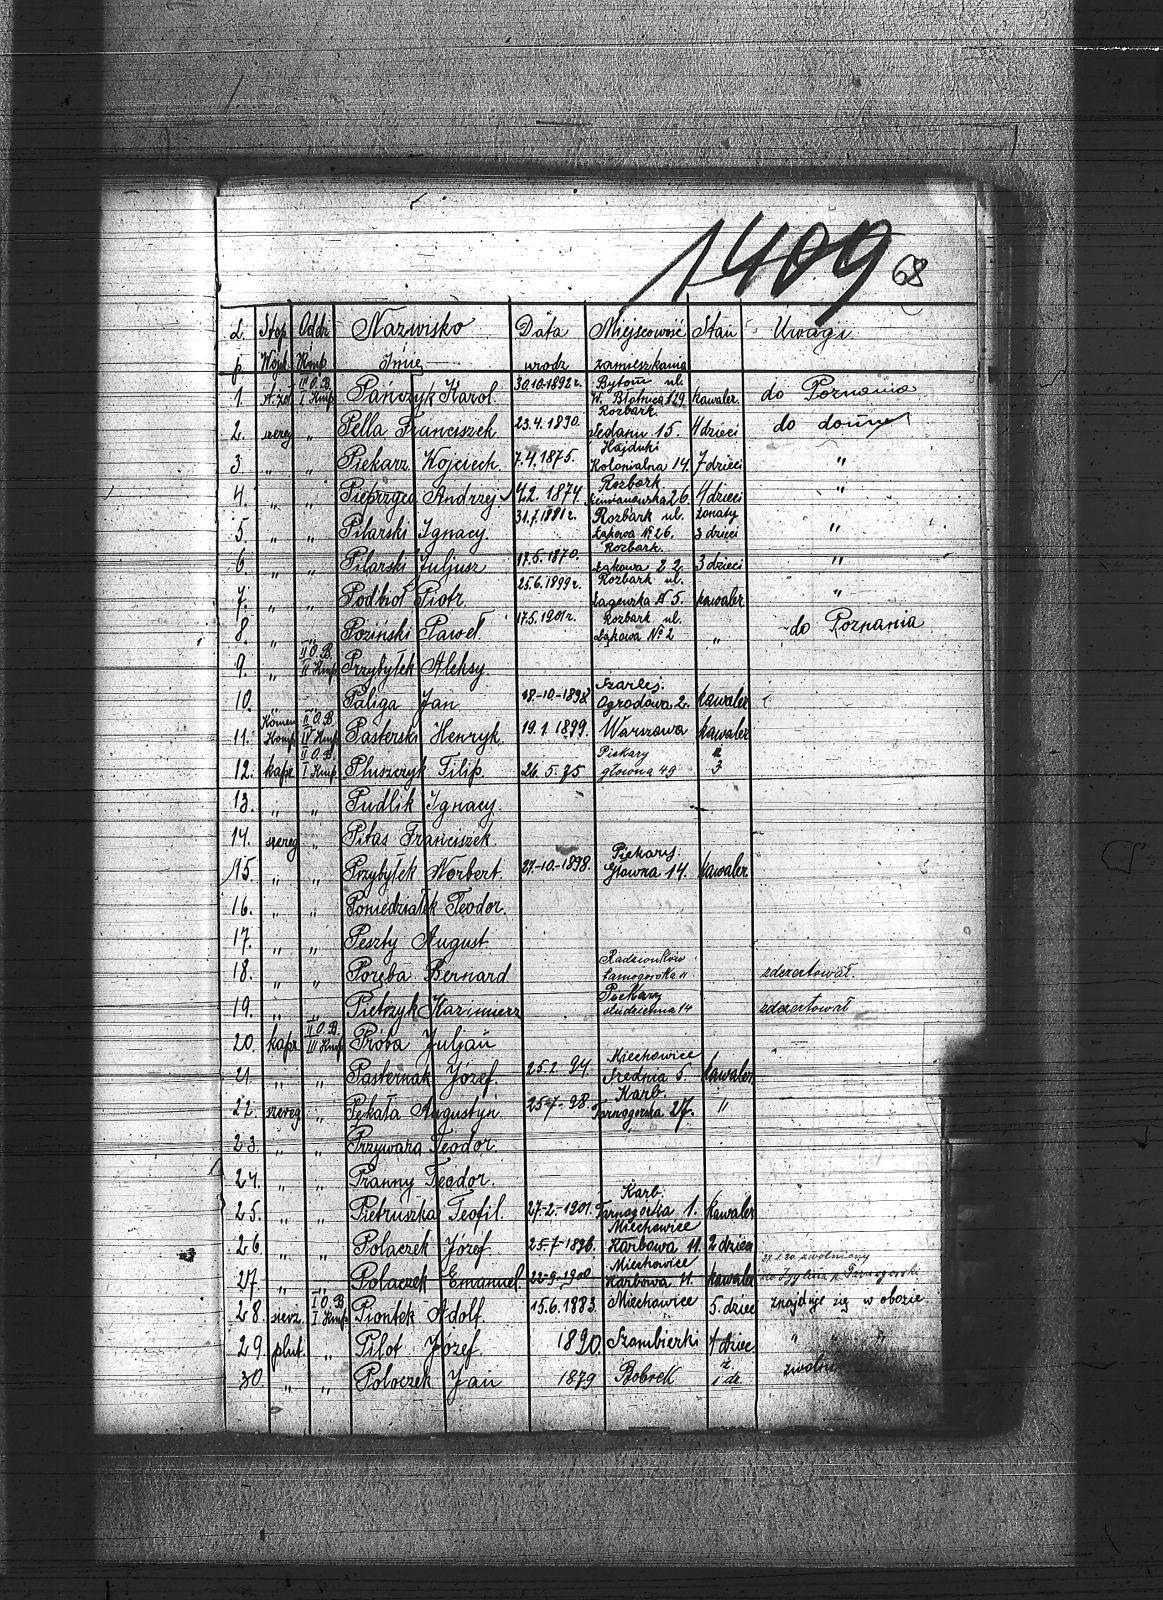 1409 68
L. Stop. Oddz. Nazwisko Data Miejscowość Stan Uwagi
p. Wojsk. Kmp. Imię urodz. zamieszkania
III O.B. 30.10.1892 r. Bytom ul.
1. st. żoł. I Kmp. Pańczyk Karol. W. Błotnica 129. kawaler. do Poznania
Rozbark
2. szereg " Pella Franciszek 23.4.1890. Sedanu 15. 4 dzieci do domu
Hajduki
3. " " Piekarz Wojciech. 7.4.1875. Kolonialna 14. 7 dzieci "
Rozbark
4. " " Pieprzyca Andrzej. 4.2.1874. Siemianowska 26. 4 dzieci "
31.7.1881 r. Rozbark ul. żonaty
5. " " Pilarski Ignacy. Łąkowa № 26. 3 dzieci "
Rozbark.
6. " " Pilarski Juljusz 17.5.1870. Łąkowa 22. 3 dzieci "
25.6.1899 r. Rozbark ul.
7. " " Piotr. № 5. kawaler "
17.5.1901 r. Rozbark ul.
8. " " Poziński Paweł. Łąkowa № 2 " do Poznania
II O.B.
9. " II Kmp. Przybyłek Aleksy.
Szarlej.
10. " " Paliga Jan 18-10-1898 Ogrodowa 2. kawaler
Komen. II O.B.
11. Komp. IV Kmp. Pasterski Henryk. 19.1.1899. Warszawa kawaler
II O.B. Piekary ż
12. kapr. I Kmp. Pluszczyk Filip. 26.5.75 głowna 49 3
13. " " Pudlik Ignacy.
14. szereg " Pitas Franciszek.
Piekary
15. " " Przybyłek Norbert. 27-10-1898. Głowna 14. kawaler
16. " " Poniedziałek Teodor.
17. " " Peszty August.
Radzionków
18. " " Poręba Bernard tarnogorska 11 zdezertował.
Piekary
19. " " Pietrzyk Kazimierz studzienna 14 zdezertował
II O.B.
20. kapr. III Kmp. Proba Juljan
Miechowice
21. " " Pasternak Józef. 25.2.94. Srednia 5. kawaler
Karb.
22. szereg " Pękała Augustyn. 25-7-98. Tarnogorska 27. "
23. " " Przywara Teodor.
24. " " Pranny Teodor.
Karb.
25. " " Pietruszka Teofil. 27-2-1901. Tarnogórska 1. kawaler
Miechowice
26. " " Polaczek Józef. 25-7-1896. Karbowa 11. 2 dzieci
Miechowice 27.1.20. zwolniony
27. " " Polaczek Emanuel. 22-9-1900 Karbowa 11. kawaler
I O.B.
28. sierż. I Kmp. Piontek Adolf. 15.6.1883. Miechowice 5. dziec znajduje się w obozie.
29. plut. " Pilot Józef. 1890. Szombierki 4 dziec " " "
30. " " Poloczek Jan 1879 Bobrek ż. 1 dz.